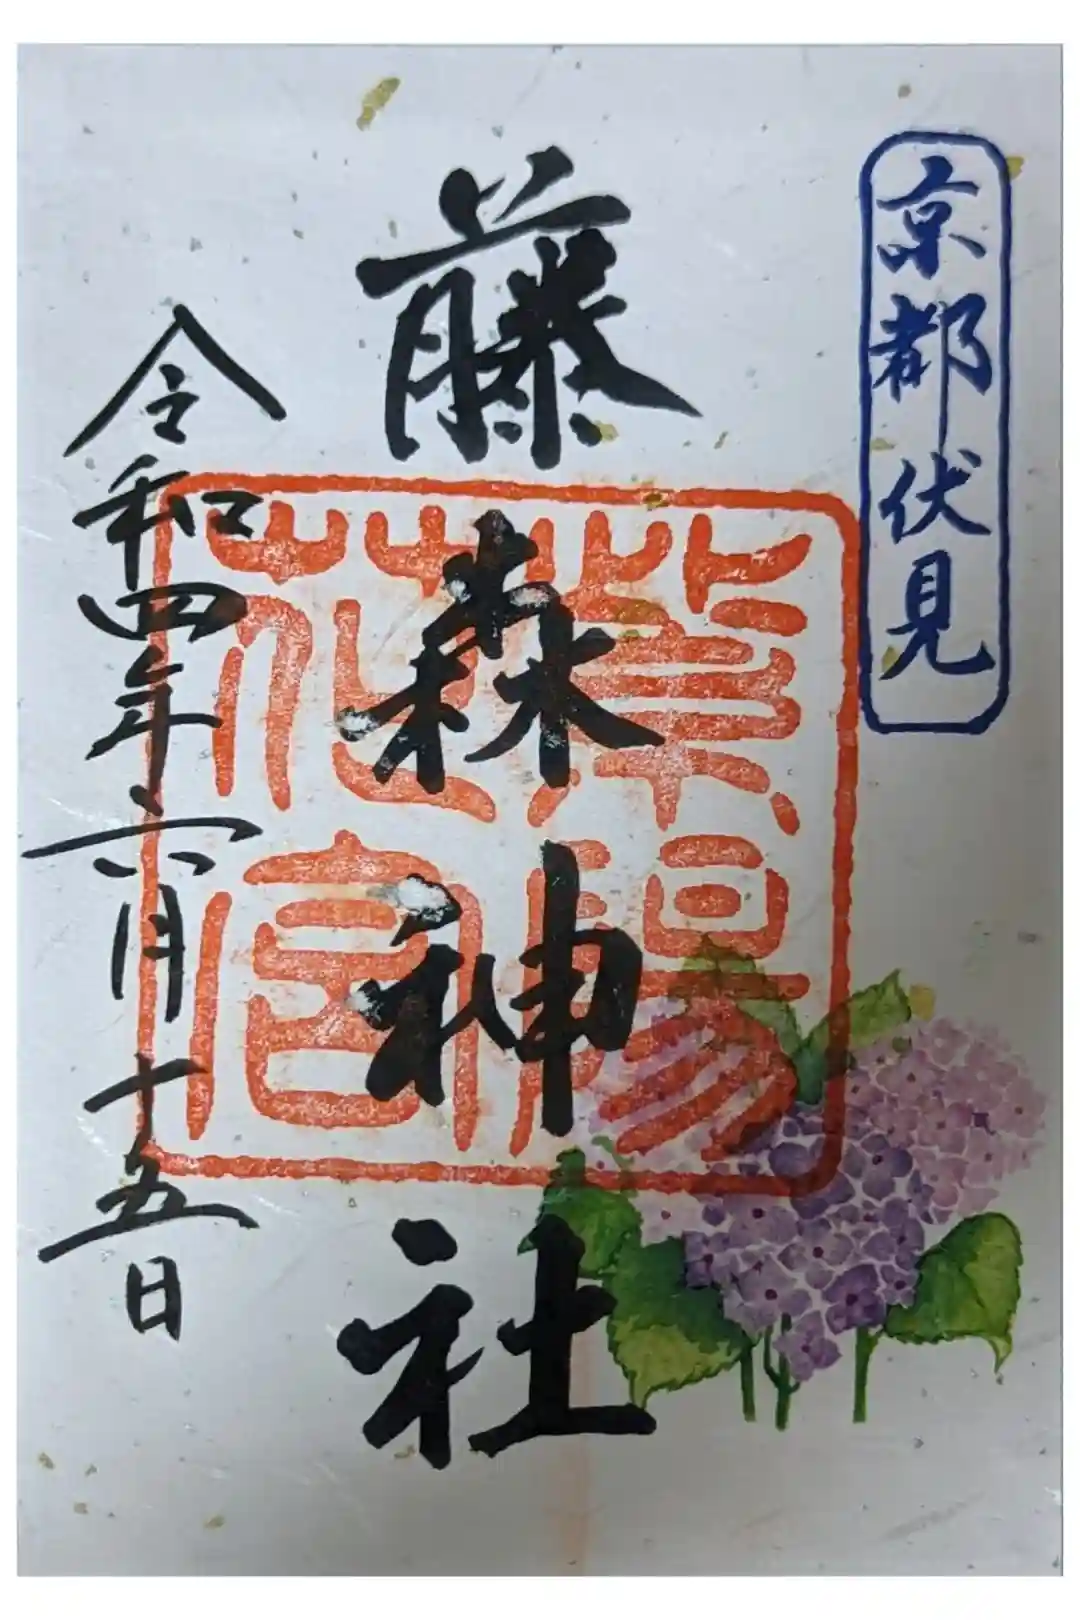 京都伏見
藤森神社
紫陽花宮
令和四年六月十五日